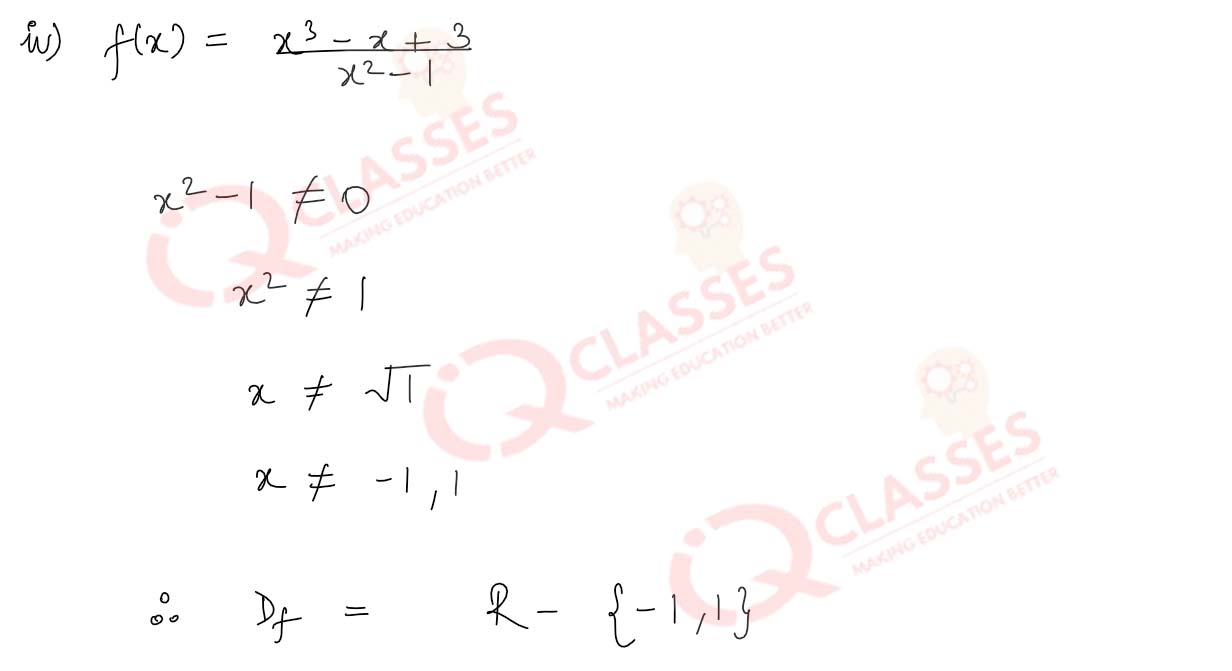 iv) f(x) = x³ - x + 3 / x² - 1
x² - 1 ≠ 0
x² ≠ 1
x ≠ √1
x ≠ -1, 1
∴ Df = R - {-1, 1}
IQ CLASSES
MAKING EDUCATION BETTER
IQ CLASSES
MAKING EDUCATION BETTER
IQ CLASSES
MAKING EDUCATION BETTER